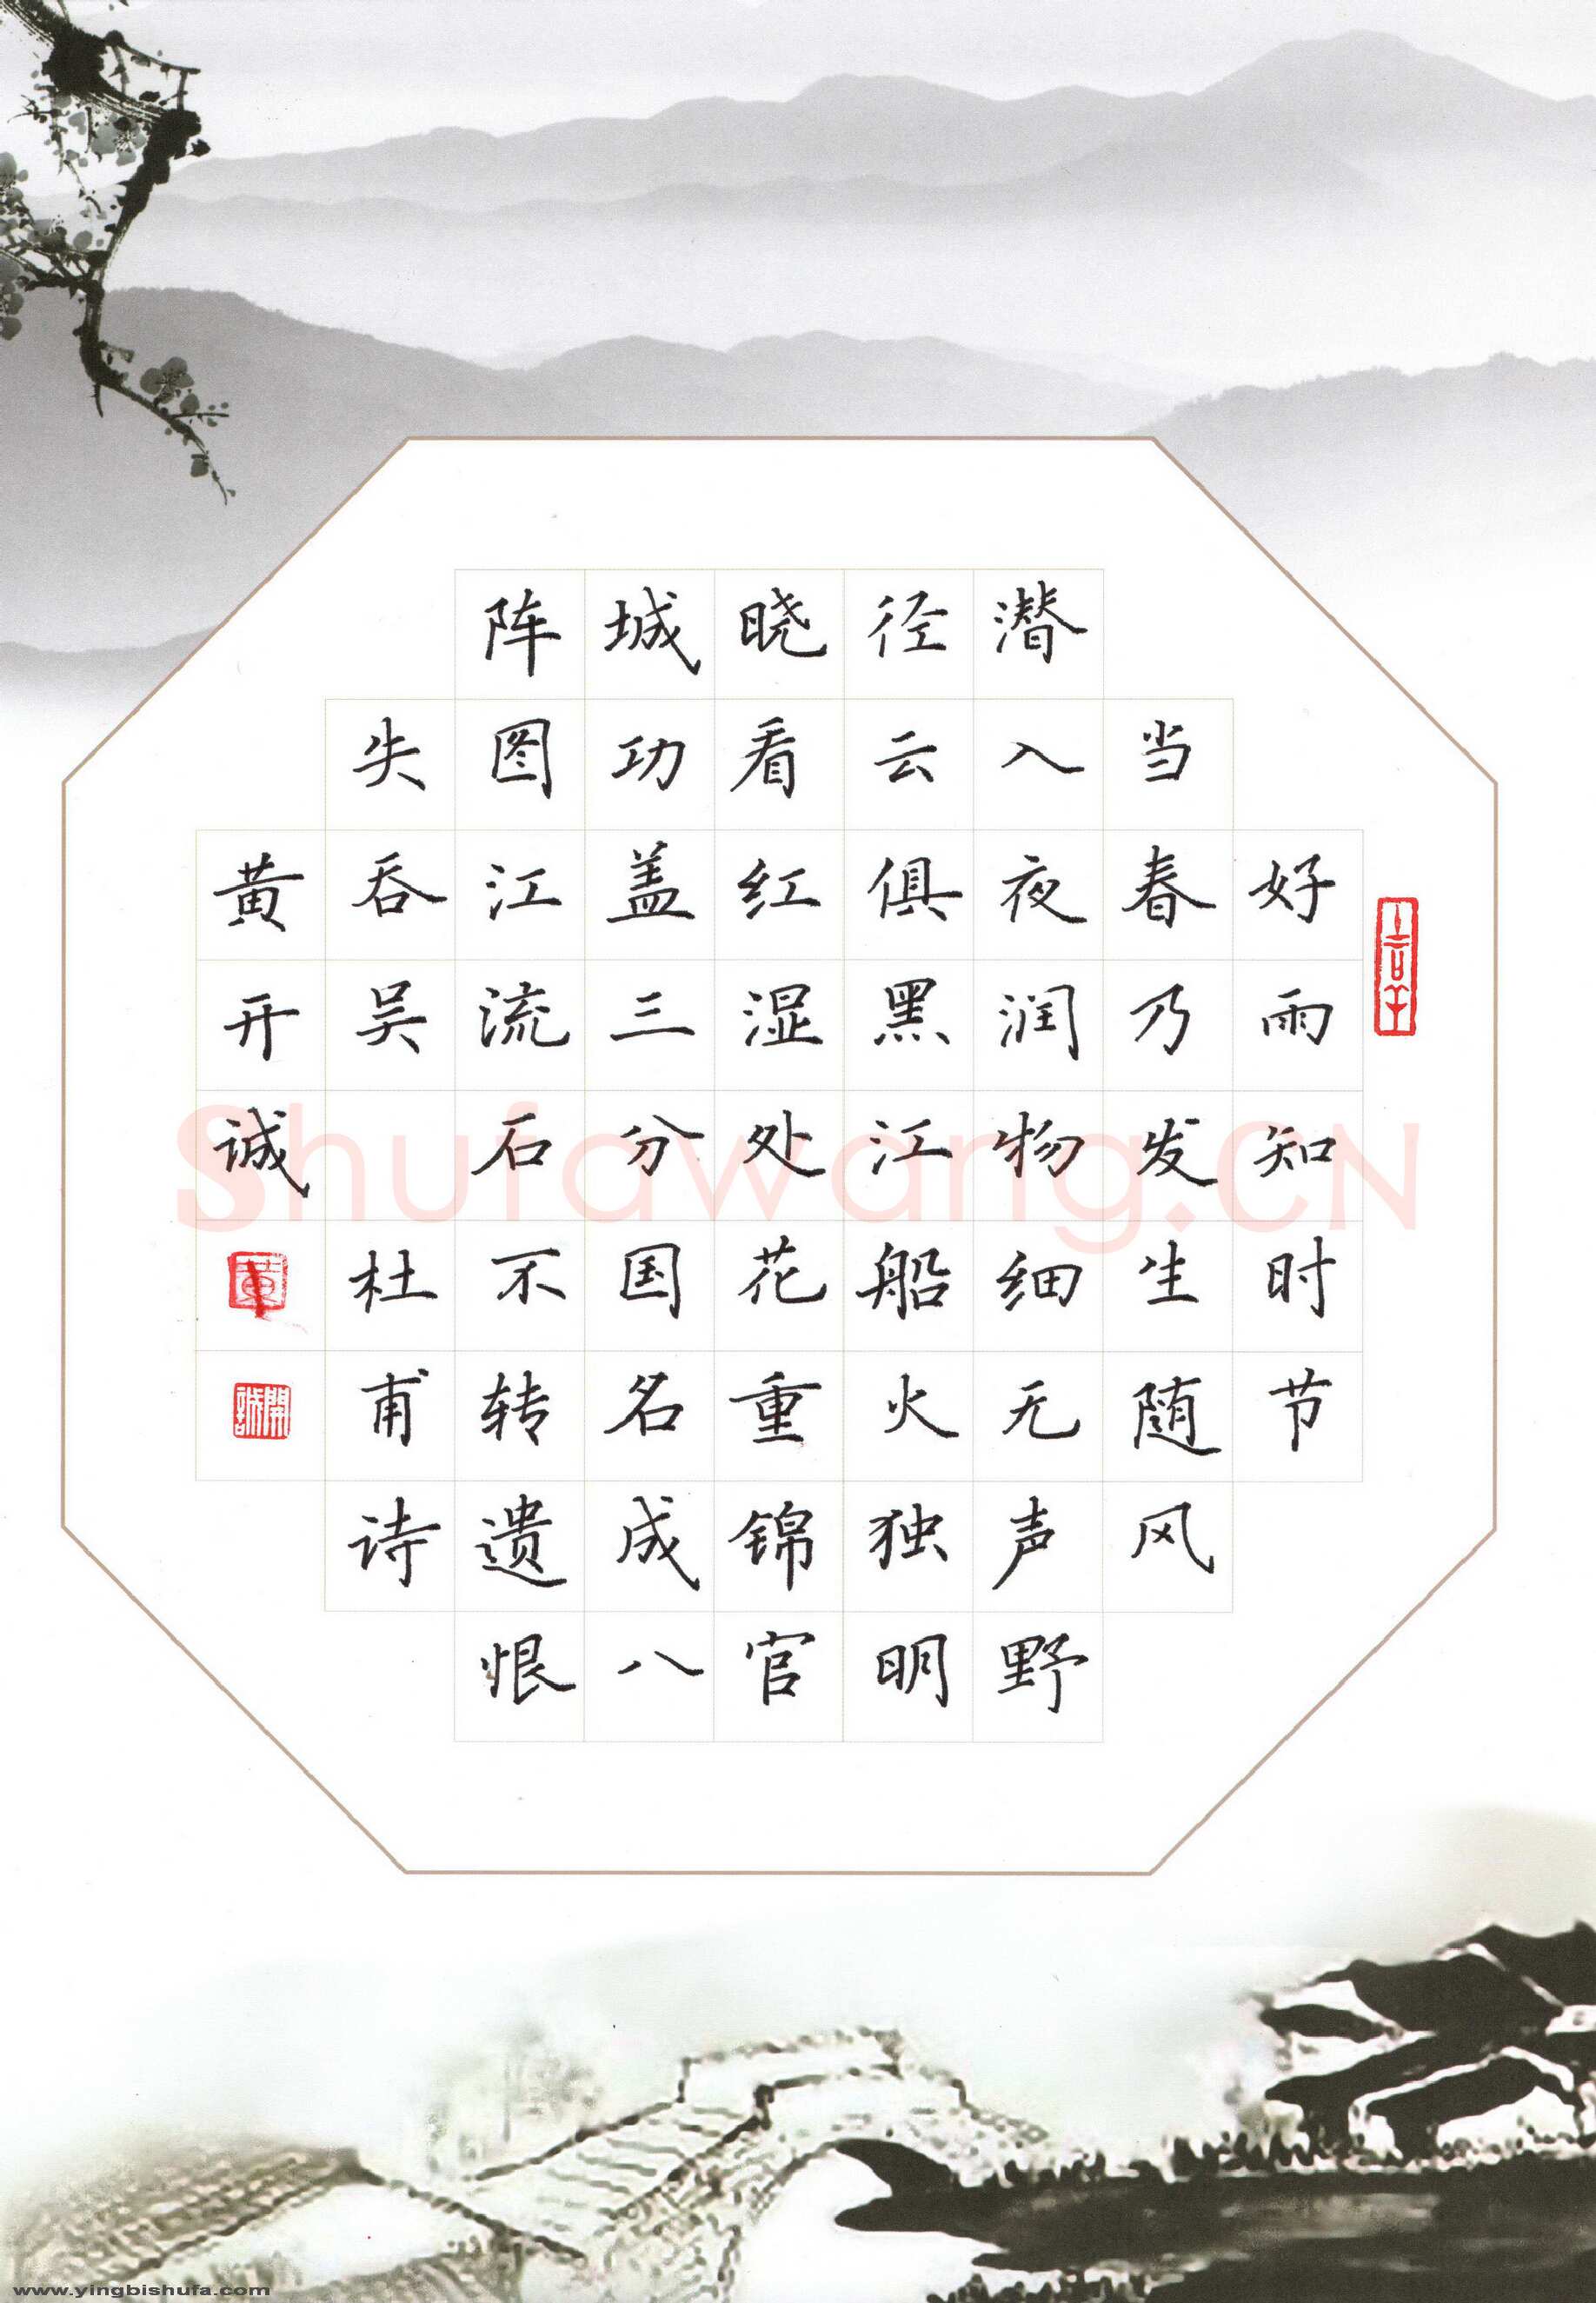 好雨知时节
当春乃发生随风
潜入夜润物细无声野
径云俱黑江船火独明
晓看红湿处花重锦官
城功盖三分国名成八
阵图江流石不转遗恨
失吞吴 杜甫诗
黄开诚
黄
開誠
Shufawang.CN
www.yingbishufa.com